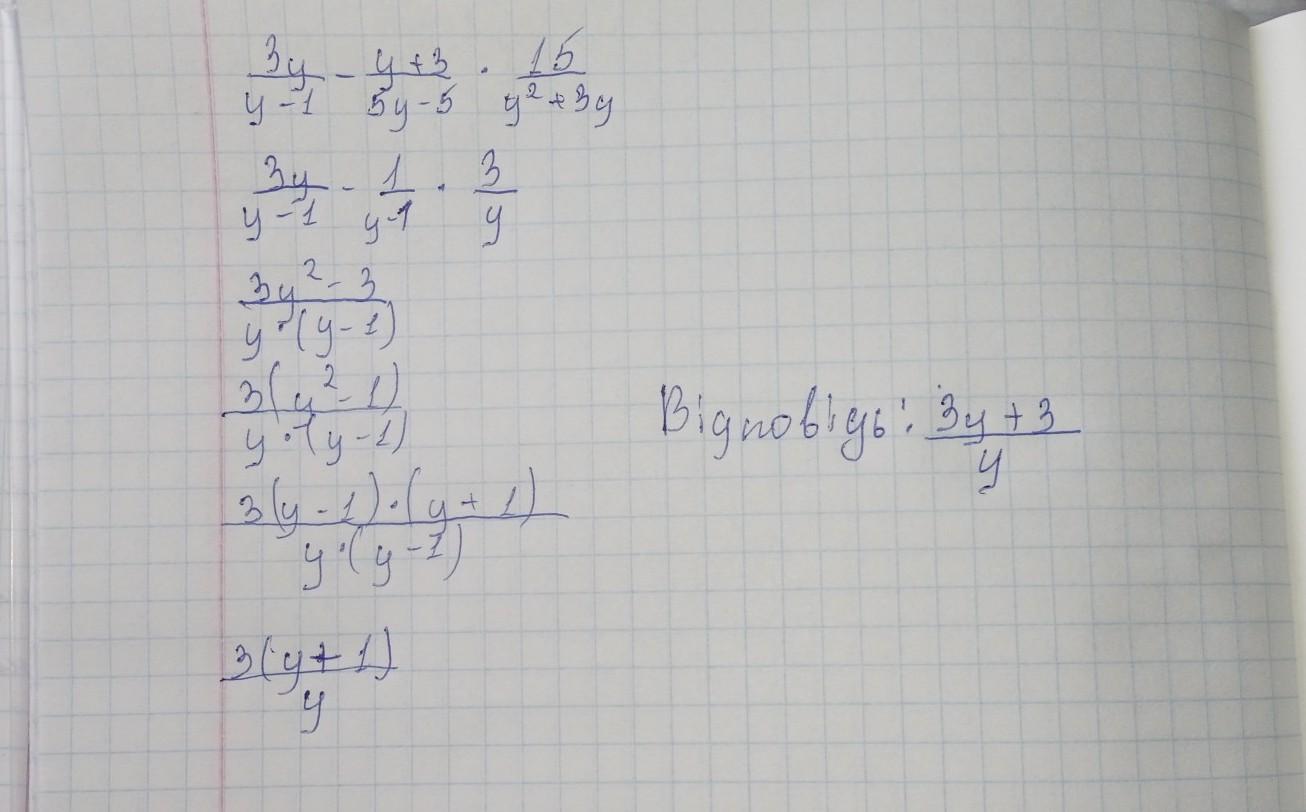 3y/(y-1) - (y+3)/(5y-5) · 15/(y²+3y)
3y/(y-1) - 1/(y-1) · 3/y
(3y²-3)/(y·(y-1))
3(y²-1)/(y·(y-1))
3(y-1)·(y+1)/(y·(y-1))
3(y+1)/y
Відповідь: (3y+3)/y